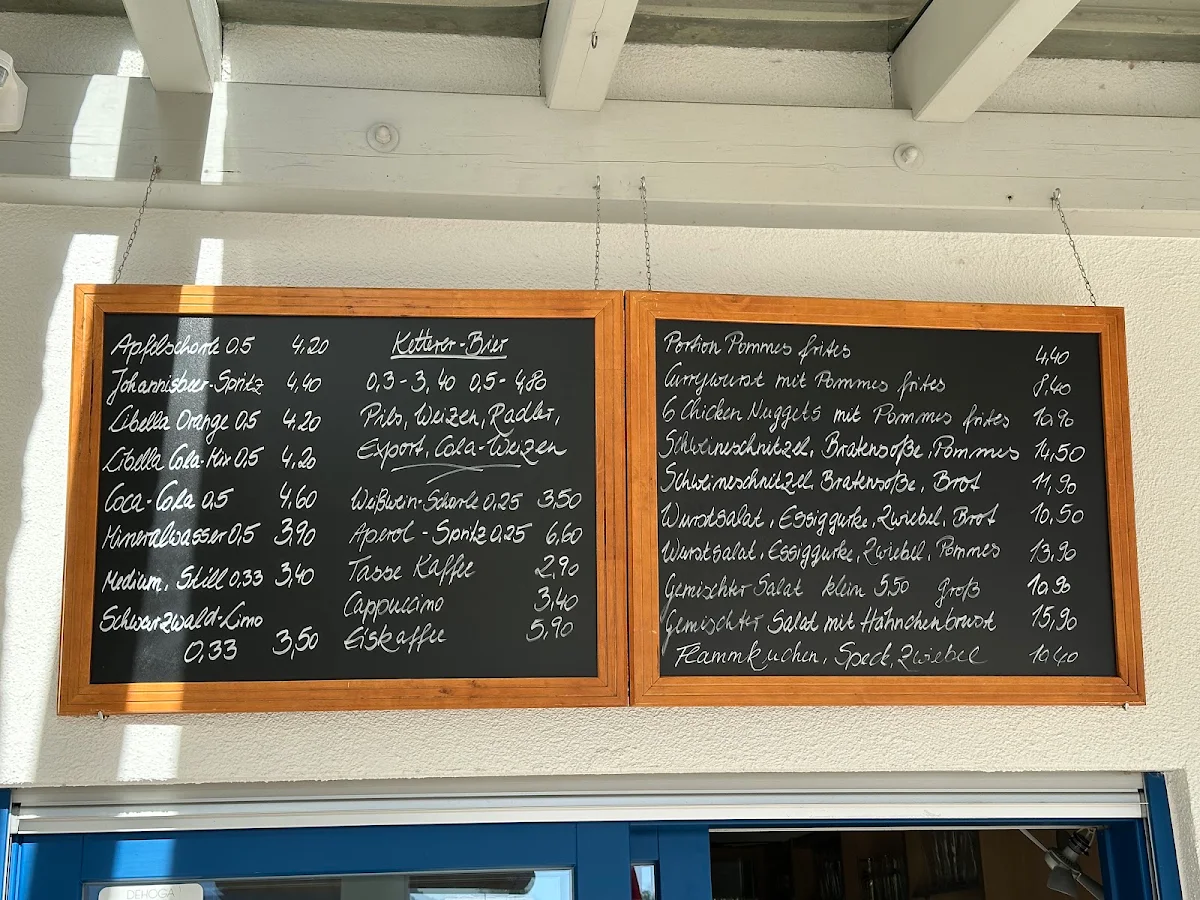 Apfelschorle 0,5 4,20
Johannisbeer-Spritz 4,40
Libella Orange 0,5 4,20
Libella Cola-Mix 0,5 4,20
Coca-Cola 0,5 4,60
Mineralwasser 0,5 3,90
Medium, Still 0,33 3,40
Schwarzwald-Limo
0,33 3,50
Ketterer-Bier
0,3 - 3,40 0,5 - 4,80
Pils, Weizen, Radler,
Export, Cola-Weizen
Weißwein-Schorle 0,25 3,50
Aperol - Spritz 0,25 6,60
Tasse Kaffee 2,90
Cappuccino 3,40
Eiskaffee 5,90
Portion Pommes frites 4,40
Currywurst mit Pommes frites 8,40
6 Chicken Nuggets mit Pommes frites 10,90
Schweineschnitzel, Bratensoße, Pommes 14,50
Schweineschnitzel, Bratensoße, Brot 11,90
Wurstsalat, Essiggurke, Zwiebel, Brot 10,50
Wurstsalat, Essiggurke, Zwiebel, Pommes 13,90
Gemischter Salat klein 5,50 groß 10,90
Gemischter Salat mit Hähnchenbrust 15,90
Flammkuchen, Speck, Zwiebel 10,40
DEHOGA